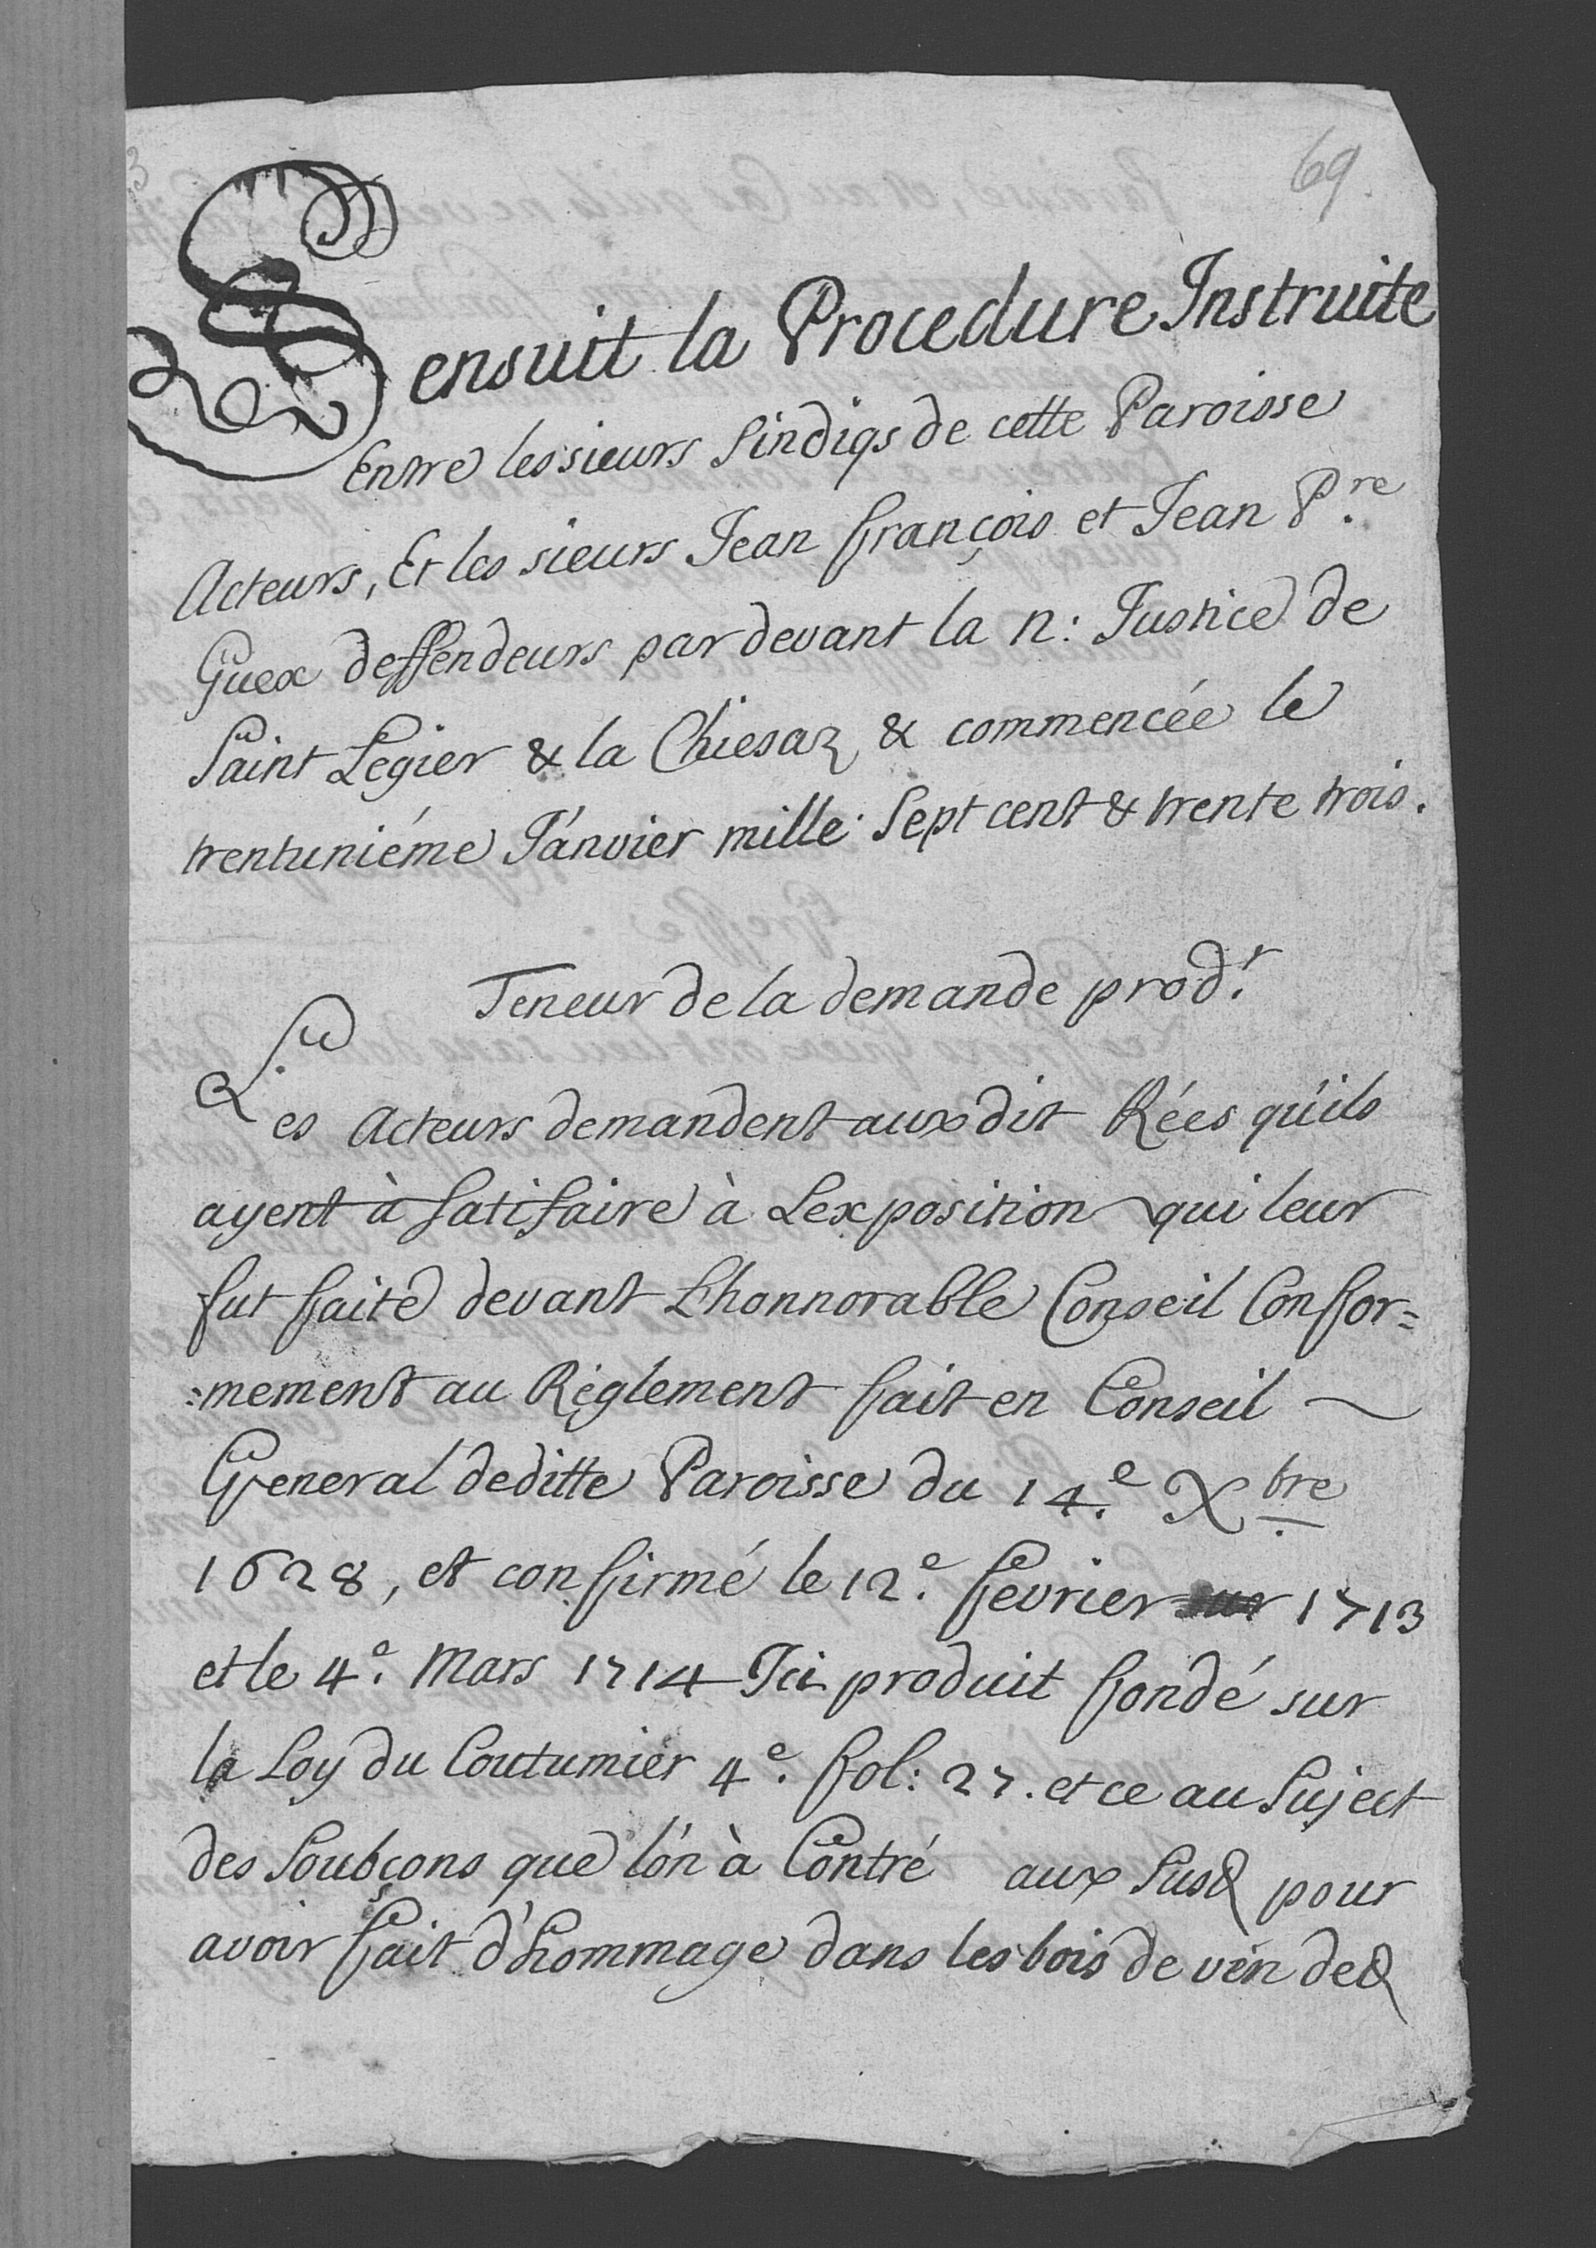 69.
Sensuit la Procedure Instruite
Entre les sieurs Sindiqs de cette Paroisse
Acteurs, Et les sieurs Jean François et Jean P.re
Guex deffendeurs par devant la n: Justice de
Saint Legier & la Chiesaz & commencée le
trentuniéme Janvier mille Sept cent & trente trois.
Teneur de la demande prod.t
Les Acteurs demandent aux dit Rées qu'ils
ayent à satisfaire à Lexposition qui leur
fut faite devant Lhonnorable Conseil Confor=
:mement au Réglement fait en Conseil ~
General deditte Paroisse du 14.e Xbre
1628, et confirmé le 12.e fevrier 1713
et le 4.e Mars 1714 Ici produit fondé sur
la Loy du Coutumier 4.e fol: 27. et ce au Suject
des Soubçons que l'ón à Contré aux Susd pour
avoir fait d'hommage dans les bois de ven ded